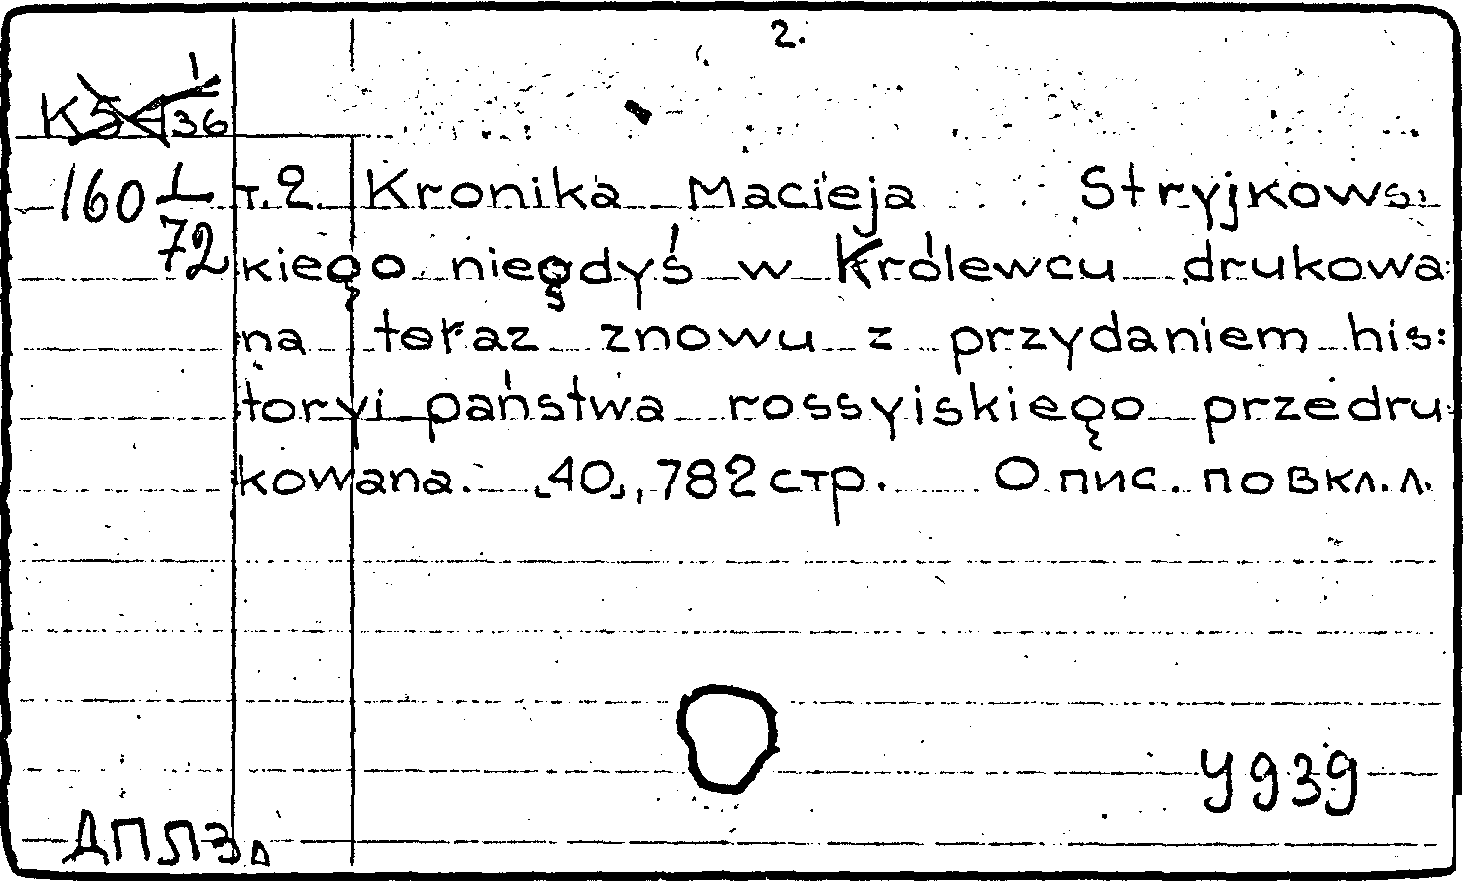 2.
1
36
160 1/72
т.2. Kronika Macieja Stryjkows:
kiego niegdyś w Królewcu drukowa:
na teraz znowu z przydaniem his:
toryi państwa rossyiskiego przedru:
kowana. [40], 782 стр. Опис. по вкл. л.
У939